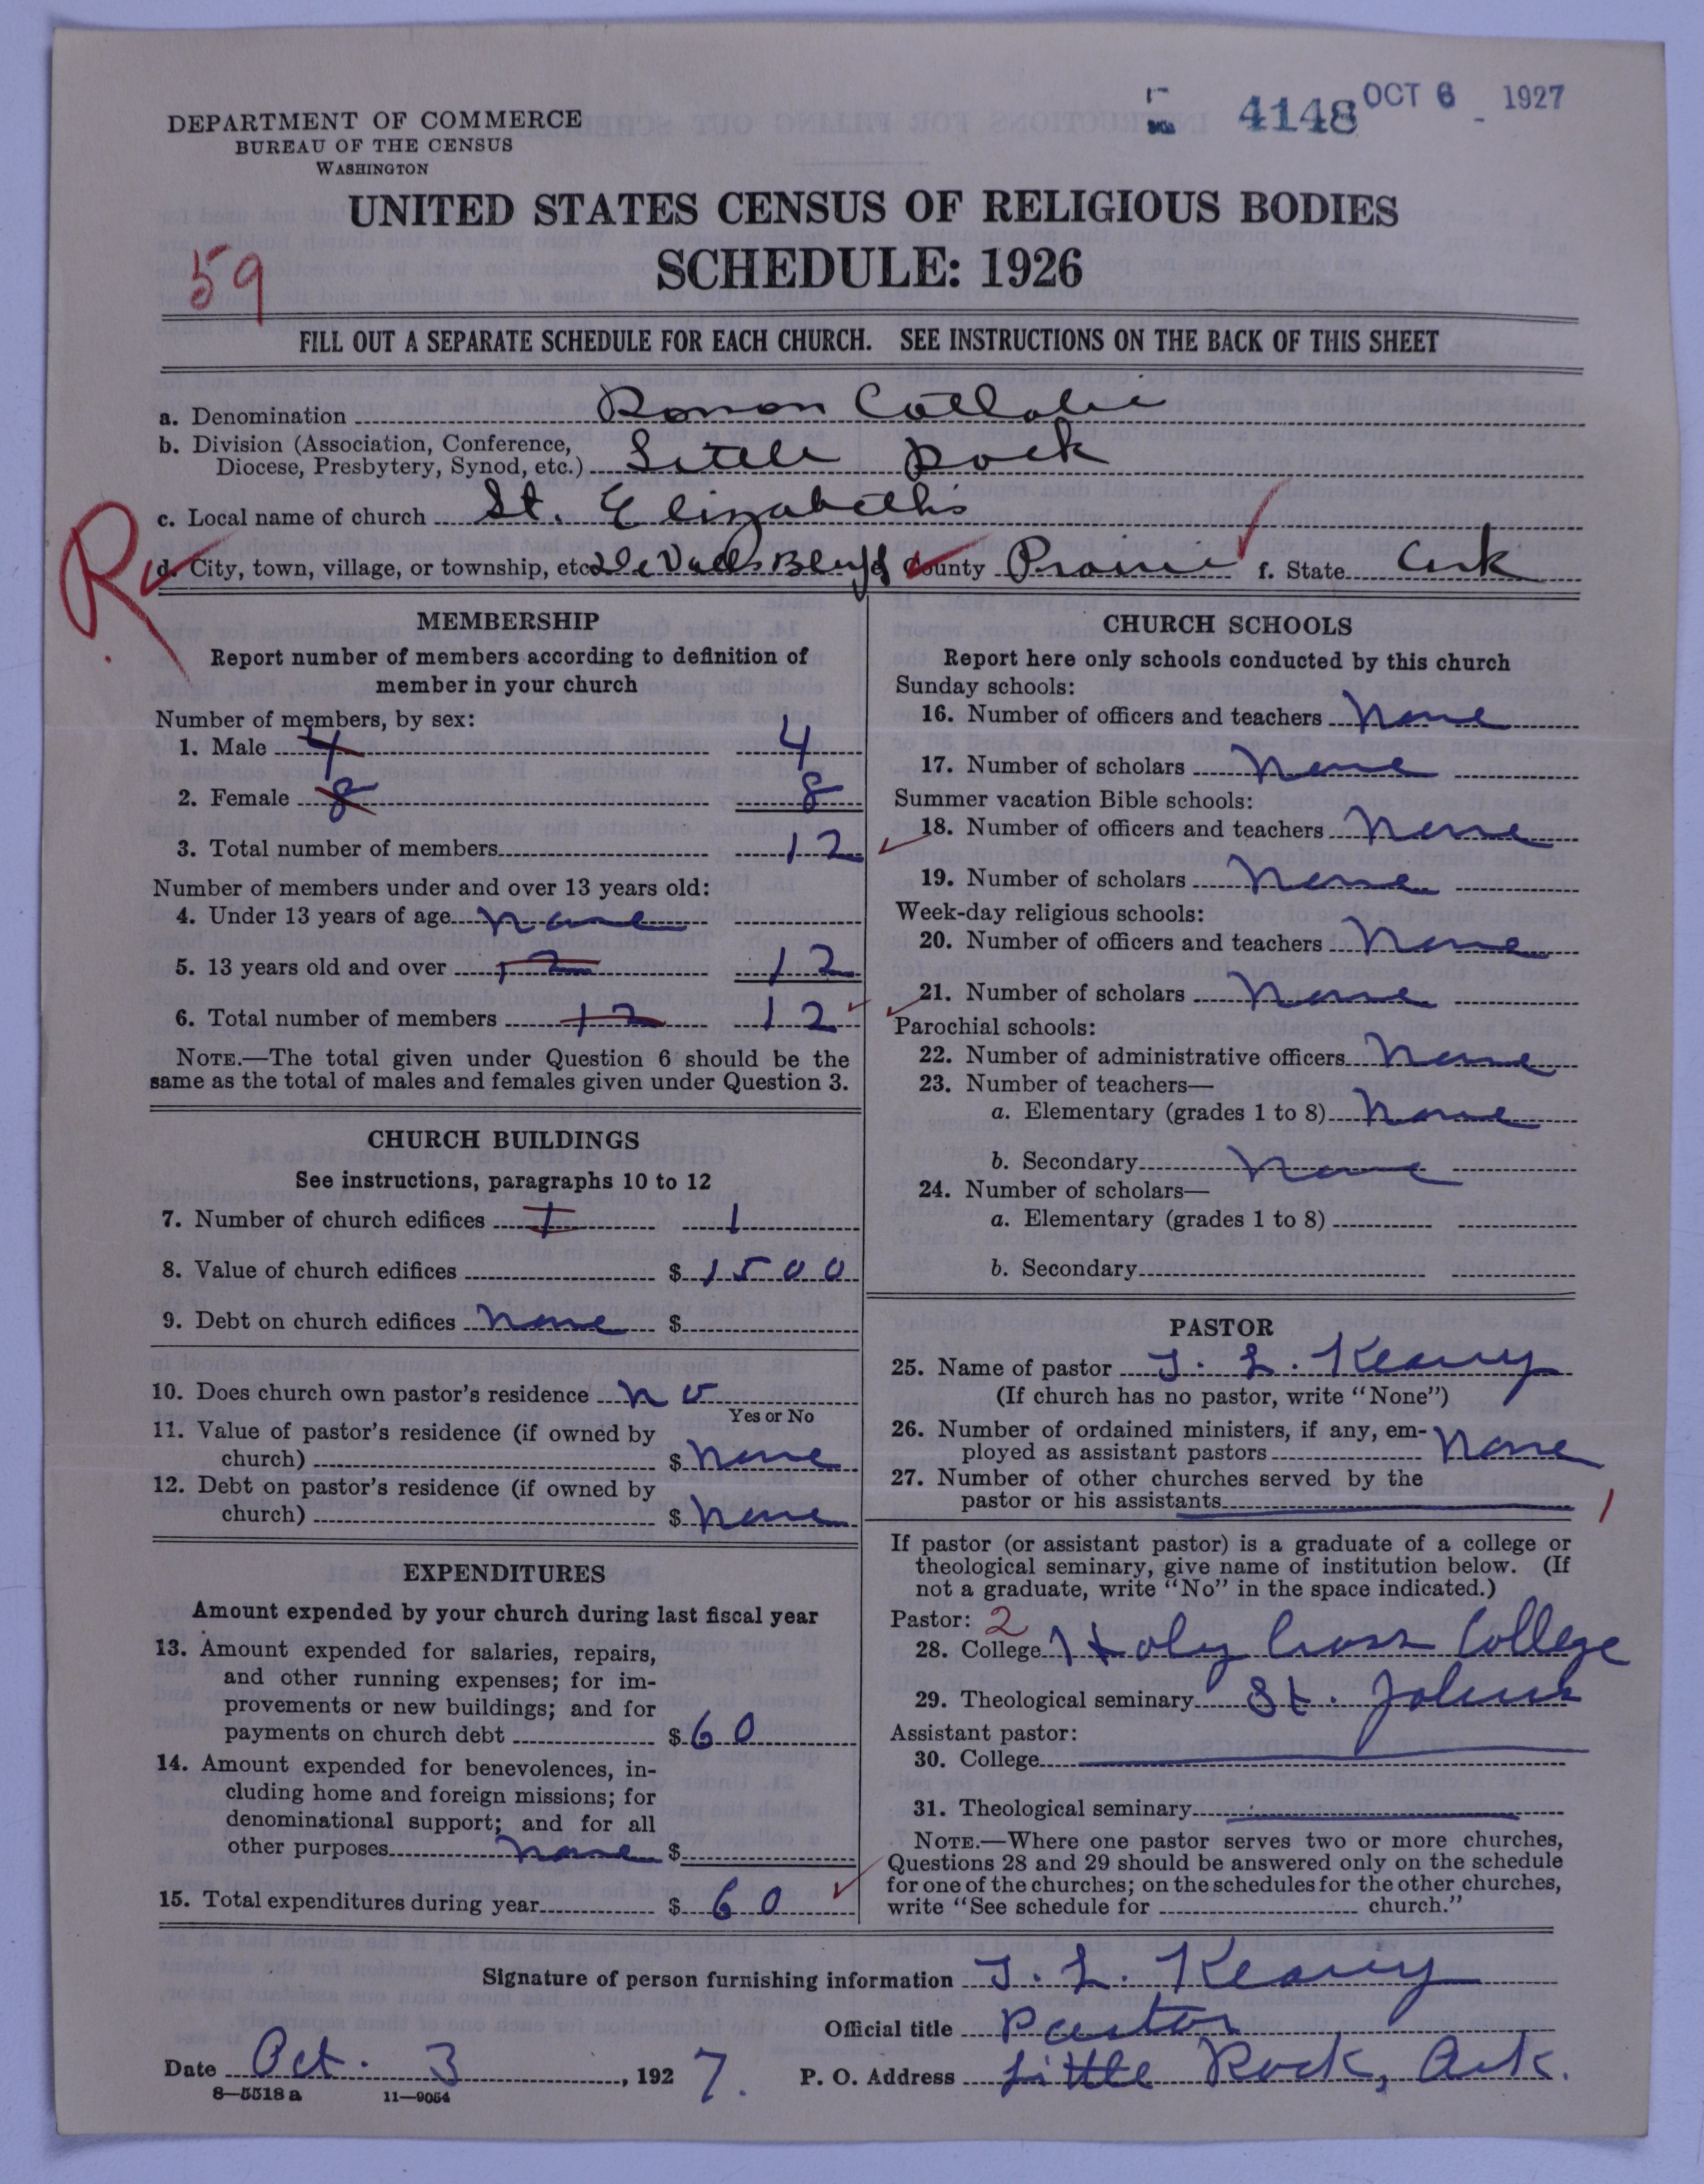 4148 OCT 6 1927
DEPARTMENT OF COMMERCE
BUREAU OF THE CENSUS
WASHINGTON
UNITED STATES CENSUS OF RELIGIOUS BODIES
SCHEDULE: 1926
59
FILL OUT A SEPARATE SCHEDULE FOR EACH CHURCH. SEE INSTRUCTIONS ON THE BACK OF THIS SHEET
a. Denomination Roman Catholic
b. Division (Association, Conference,
Diocese, Presbytery, Synod, etc.) Little Rock
c. Local name of church St. Elizabeth's
R
d. City, town, village, or township, etc. De Valls Bluff e. County Prairie f. State Ark
MEMBERSHIP
Report number of members according to definition of
member in your church
Number of members, by sex:
1. Male 4 4
2. Female 8 8
3. Total number of members 12
Number of members under and over 13 years old:
4. Under 13 years of age none
5. 13 years old and over 12 12
6. Total number of members 12 12
NOTE.—The total given under Question 6 should be the
same as the total of males and females given under Question 3.
CHURCH BUILDINGS
See instructions, paragraphs 10 to 12
7. Number of church edifices 1 1
8. Value of church edifices $ 1500
9. Debt on church edifices none $
10. Does church own pastor's residence no
Yes or No
11. Value of pastor's residence (if owned by
church) $ none
12. Debt on pastor's residence (if owned by
church) $ none
EXPENDITURES
Amount expended by your church during last fiscal year
13. Amount expended for salaries, repairs,
and other running expenses; for im-
provements or new buildings; and for
payments on church debt $ 60
14. Amount expended for benevolences, in-
cluding home and foreign missions; for
denominational support; and for all
other purposes none $
15. Total expenditures during year $ 60
CHURCH SCHOOLS
Report here only schools conducted by this church
Sunday schools:
16. Number of officers and teachers None
17. Number of scholars None
Summer vacation Bible schools:
18. Number of officers and teachers None
19. Number of scholars None
Week-day religious schools:
20. Number of officers and teachers None
21. Number of scholars None
Parochial schools:
22. Number of administrative officers None
23. Number of teachers—
a. Elementary (grades 1 to 8) None
b. Secondary None
24. Number of scholars—
a. Elementary (grades 1 to 8)
b. Secondary
PASTOR
25. Name of pastor T. L. Keany
(If church has no pastor, write "None")
26. Number of ordained ministers, if any, em-
ployed as assistant pastors None
27. Number of other churches served by the
pastor or his assistants 1
If pastor (or assistant pastor) is a graduate of a college or
theological seminary, give name of institution below. (If
not a graduate, write "No" in the space indicated.)
Pastor: 2
28. College Holy Cross College
29. Theological seminary St. Johns
Assistant pastor:
30. College
31. Theological seminary
NOTE.—Where one pastor serves two or more churches,
Questions 28 and 29 should be answered only on the schedule
for one of the churches; on the schedules for the other churches,
write "See schedule for church."
Signature of person furnishing information T. L. Keany
Official title Pastor
Date Oct. 3, 1927. P. O. Address Little Rock, Ark.
8—5518 a 11—9054